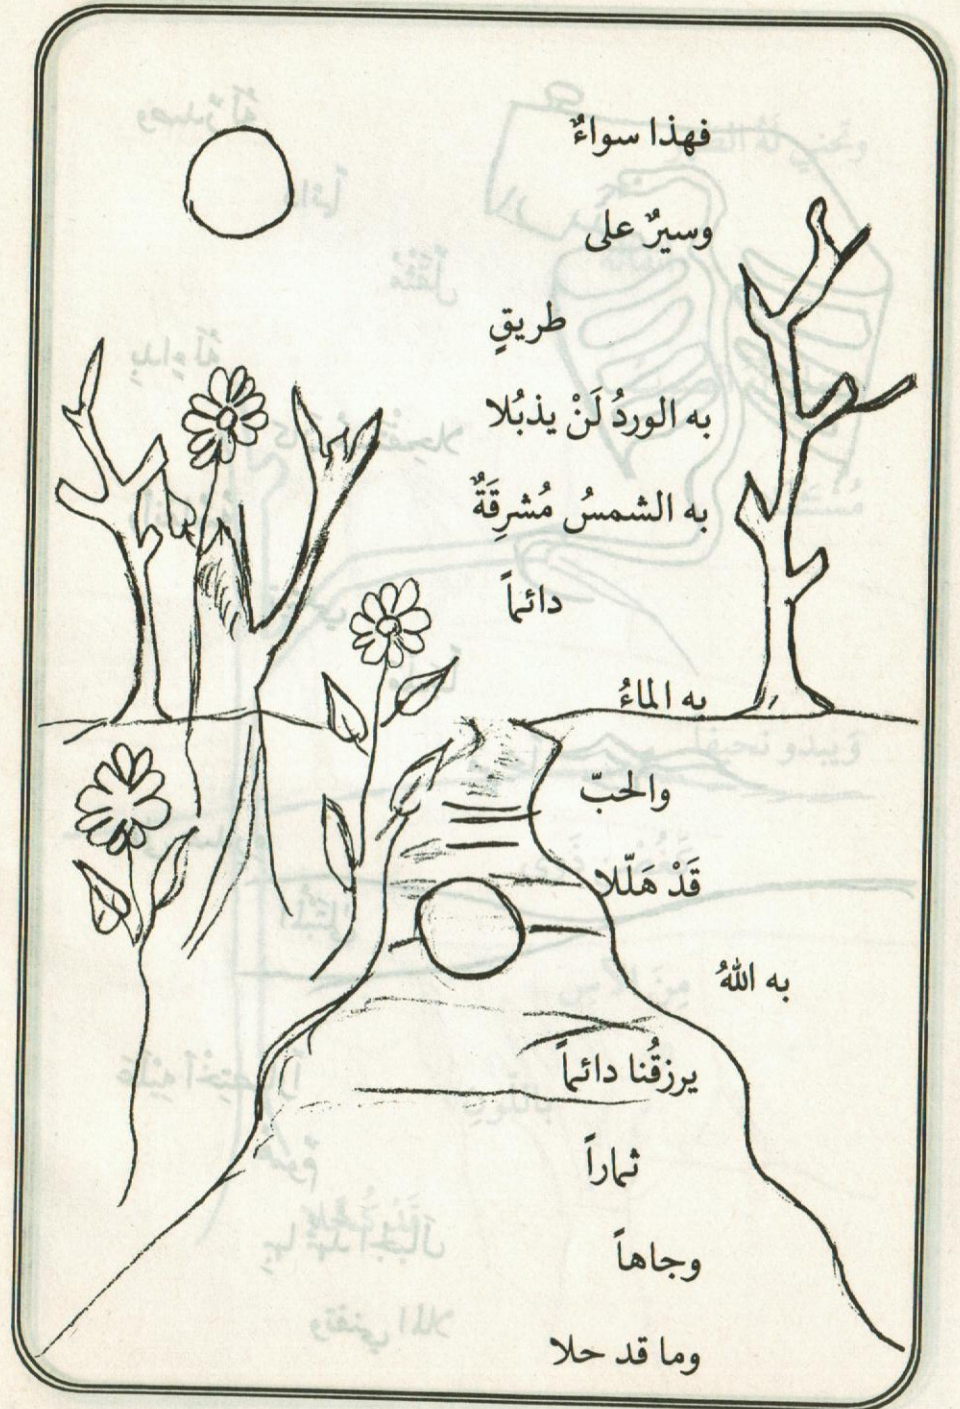 فهذا سواءٌ
وسيرٌ على
طريقٍ
به الوردُ لَنْ يذبُلا
به الشمسُ مُشرِقَةٌ
دائماً
به الماءُ
والحبّ
قَدْ هَلّلا
به اللهُ
يرزقُنا دائماً
ثماراً
وجاهاً
وما قد حلا